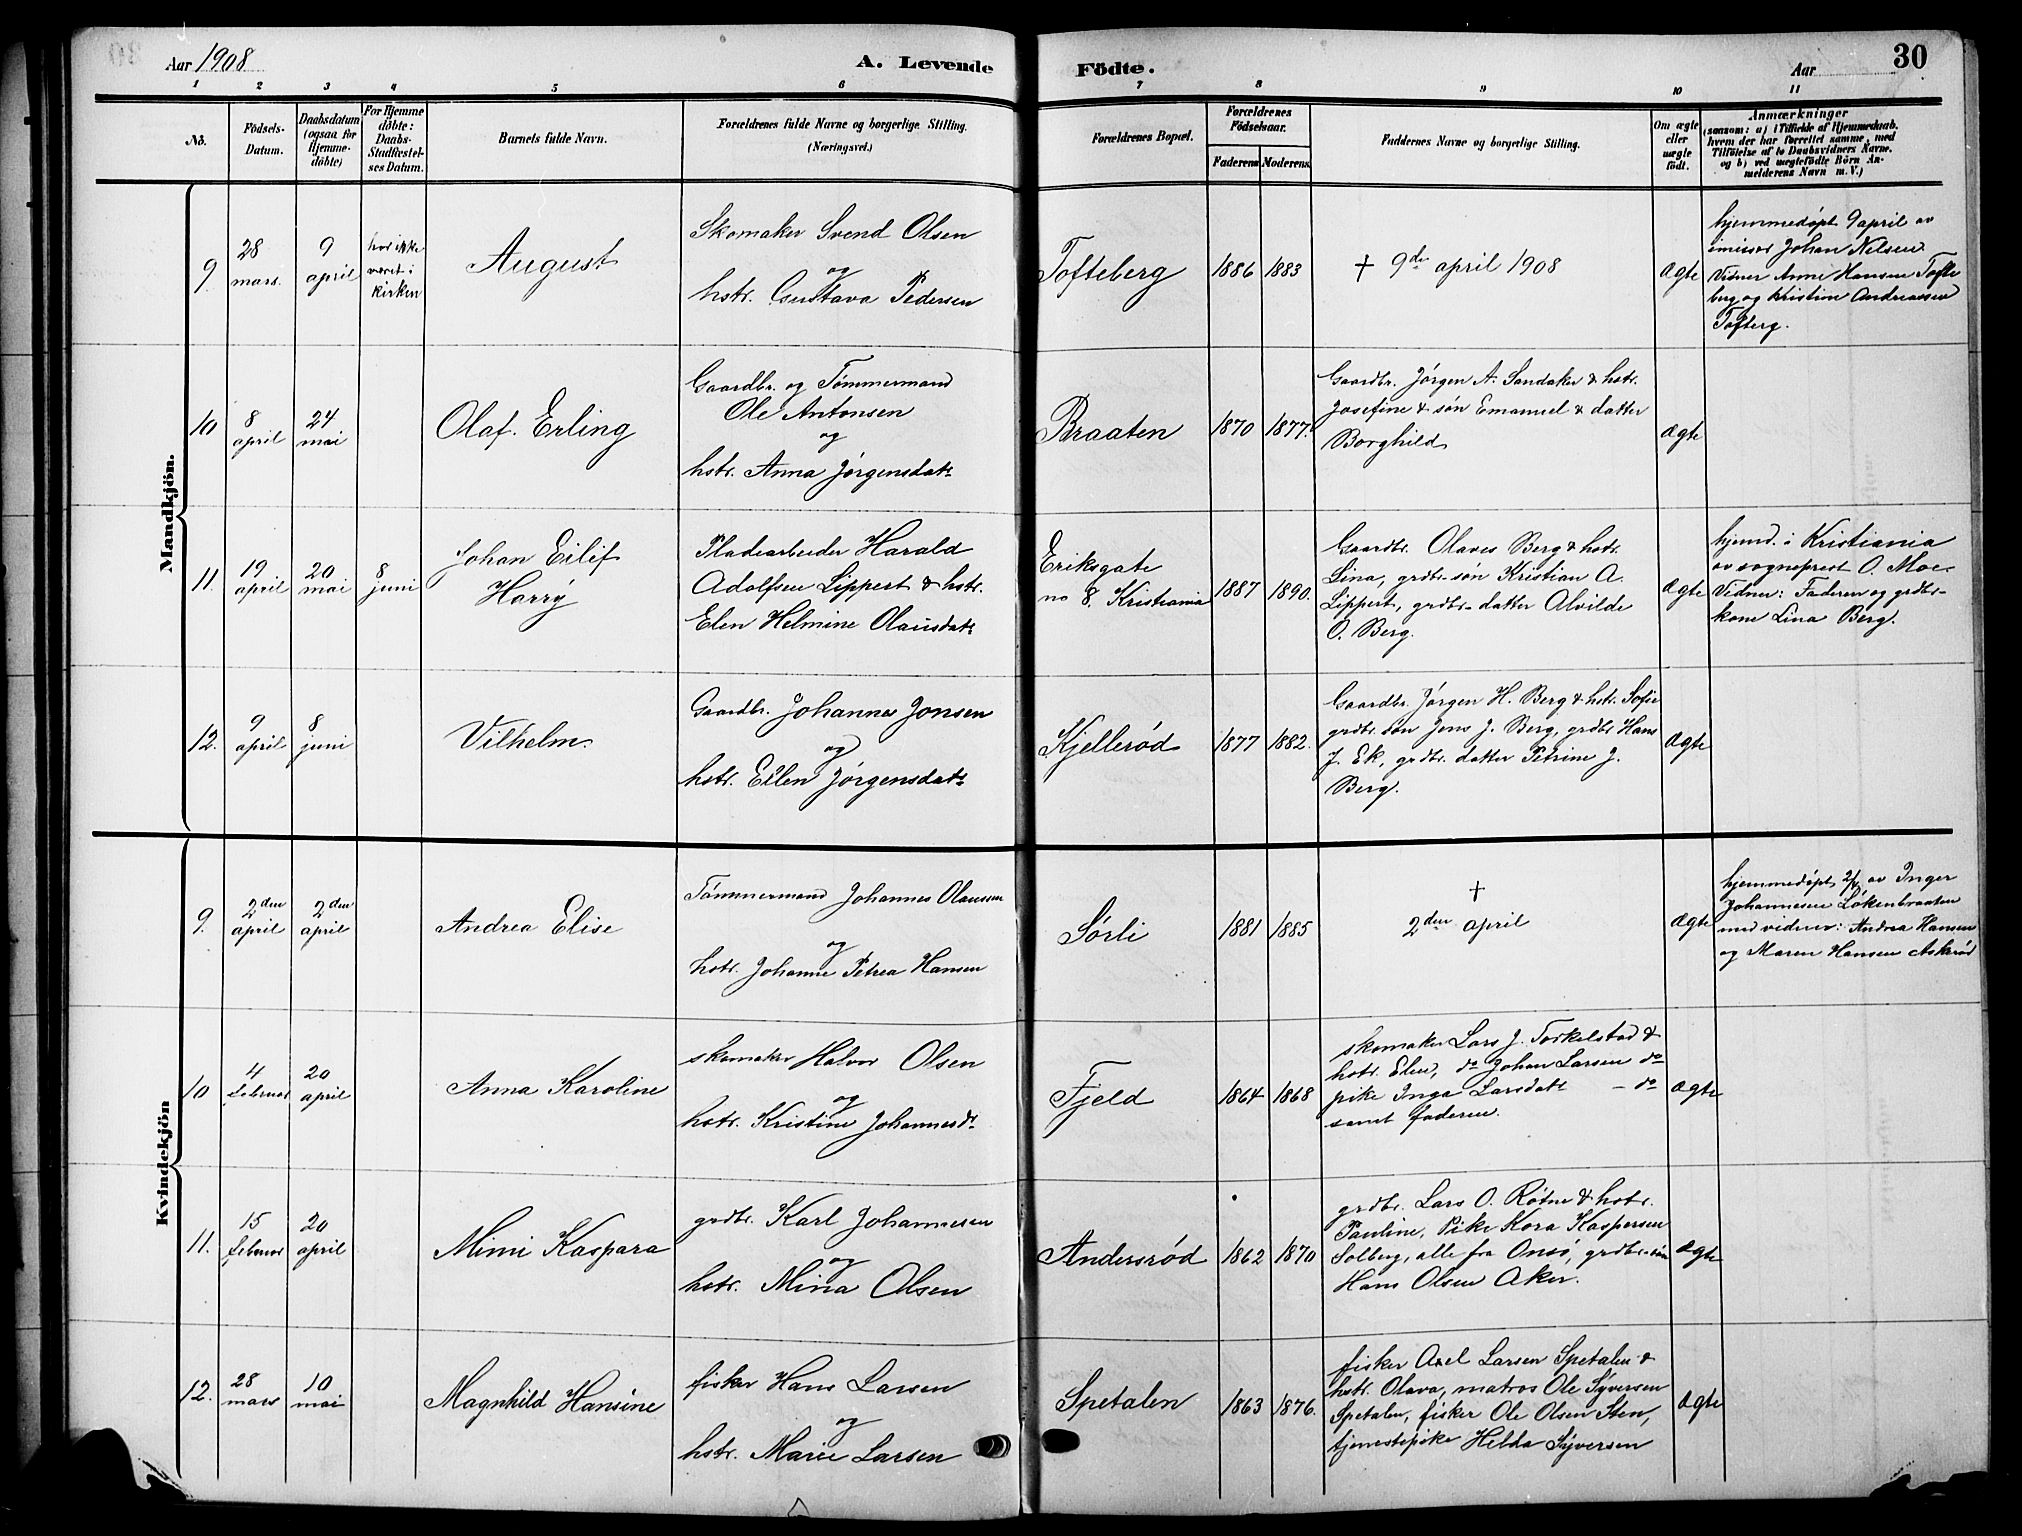 Aar 1908
A. Levende Födte.
Aar
30
1 2 3 4 5 6 7 8 9 10 11
No.
Födsels-
Datum.
Daabsdatum
(ogsaa for
Hjemme-
döbte)
For Hjemme
döbte:
Daabs-
Stadfæstel-
ses Datum.
Barnets fulde Navn.
Forældrenes fulde Navne og borgerlige Stilling.
(Næringsvei.)
Forældrenes Bopæl.
Forældrenes
Födselsaar.
Faderens Moderens
Faddernes Navne og borgerlige Stilling.
Om ægte
eller
uægte
födt.
Anmærkninger
(saasom: a) i Tilfælde af Hjemmedaab,
hvem der har forrettet samme, med
Tilföielse af to Daabsvidners Navne,
og b) ved uægtefödte Börn An-
melderens Navn m. V.)
Mandkjön.
9
28
mars.
9
april
har ikke
været i
kirken
August
Skomaker Svend Olsen
og
hstr. Gustava Pedersen
Tofteberg
1886
1883
† 9de april 1908
Ægte
hjemmedøpt 9 april av
emissær Johan Nelsen
Vidner Anne Hansen Tofte
berg og Kristine Andreassen
Tofterg.
10
8
april
24
mai
Olaf. Erling
Gaardbr. og Tømmermand
Ole Antonsen
og
hstr. Anna Jørgensdatr
Braaten
1870
1877.
Gaardbr. Jørgen A. Sandaker & hstr.
Josefine & søn Emanuel & datter
Borghild
Ægte
11.
19
april
20
mai
8
juni
Johan Eilif
Harry
Pladearbeider Harald
Adolfsen Lippert & hstr.
Elen Helmine Olausdatr
Eriksgate
no 8. Kristiania
1887
1890.
Gaardbr. Olaves Berg & hstr.
Lina, grdbr-søn Kristian A.
Lippert, grdbr-datter Alvilde
O. Berg.
Ægte
hjemd. i Kristiania
av sogneprest O. Moe-
Vidner: Faderen og grdbr-
kone Lina Berg.
12.
9
april
8
juni
Vilhelm.
Gaardbr. Johannes Jonsen
og
hstr. Ellen Jørgensdatr
Kjellerød
1877
1882.
Gaardbr Jørgen H. Berg & hstr. Sofie
grdbr. søn Jens J. Berg, grdbr Hans
J. Ek, grdbr. datter Petrine J.
Berg.
Ægte
Kvindekjön
9.
2den
april
2den
april
Andrea Elise
Tømmermand Johannes Olaussen
og
hstr. Johanne Petrea Hansen
Sørli
1881
1885
†
2den april
Ægte
hjemmedøpt 2/4 av Inger
Johannesen Løkenbraaten
med vidner: Andrea Hansen
og Maren Hansen Askerød
10
4
februar
20
april
Anna Karoline
skomaker Halvor Olsen
og
hstr. Kristine Johannesdr
Fjeld
1864
1868
skomaker Lars J. Torkelstad &
hstr. Elen, do Johan Larsen do
pike Inga Larsdatr – do
samt faderen.
Ægte
11.
15
februar
20
april
Mimi Kaspara
grdbr. Karl Johannesen
og
hstr. Mina Olsen
Andersrød
1862
1870
grdbr. Lars O. Røtne & hstr.
Pauline, Pike Kora Kaspersen
Solberg, alle fra Onsø, grdbr-søn
Hans Olsen Aker.
Ægte
12.
28
mars
10
mai
Magnhild Hansine
fisker Hans Larsen
og
hstr. Marie Larsen
Spetalen
1863
1876.
fisker Axel Larsen Spetalen &
hstr. Olava, matros Ole Syversen
Spetalen, fisker Ole Olsen Sten,
tjenestepike Helda Syversen
Ægte